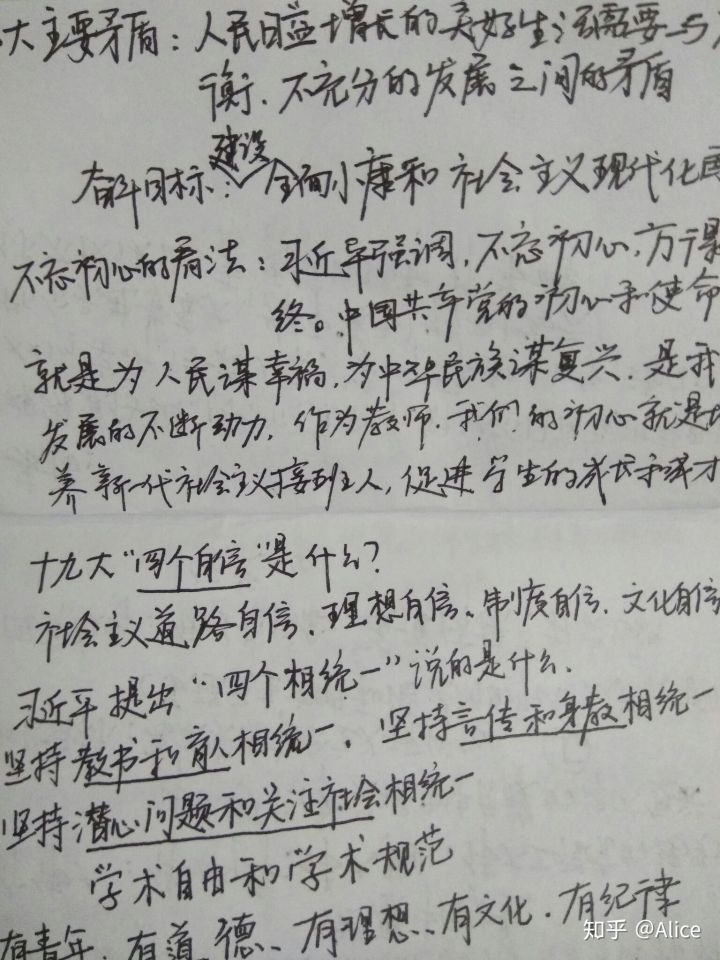 大主要矛盾：人民日益增长的美好生活需要与
衡、不充分的发展之间的矛盾
建设
奋斗目标：全面小康和社会主义现代化国
不忘初心的看法：习近平强调，不忘初心，方得
终。中国共产党的初心和使命
就是为人民谋幸福，为中华民族谋复兴，是我
发展的不断动力，作为教师，我们的初心就是培
养新一代社会主义接班人，促进学生的成长和成才
十九大“四个自信”是什么？
社会主义道路自信、理想自信、制度自信、文化自信
习近平提出“四个相统一”说的是什么、
坚持教书和育人相统一，坚持言传和身教相统一
坚持潜心问题和关注社会相统一
学术自由和学术规范
有青年、有道德、有理想、有文化、有纪律
知乎 @Alice